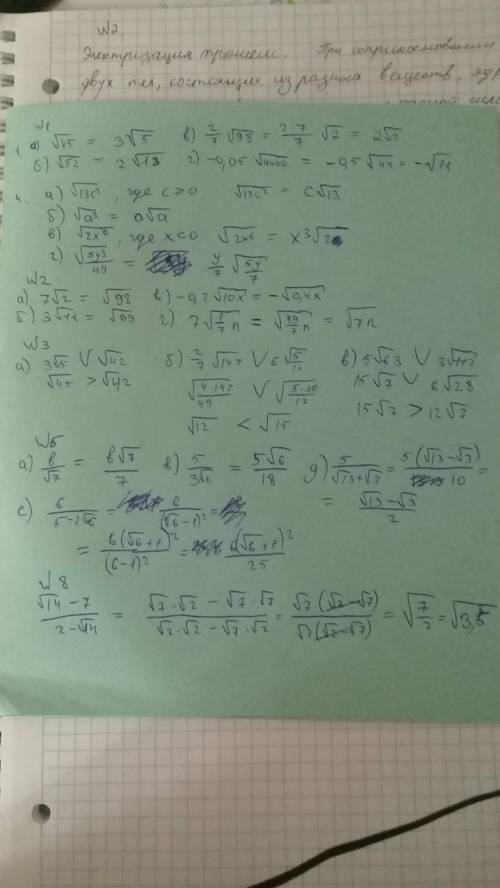 №2.
Электризация трением. При соприкосновении
двух тел, состоящих из разных веществ,
№1
1. а) √45 = 3√5 в) 2/7 √98 = 2·7/7 √2 = 2√2
б) √52 = 2√13 г) -0,05 √4400 = -0,5 √44 = -√11
4. а) √13c², где c>0 √13c² = c√13
б) √a³ = a√a
в) √2x⁶, где x<0 √2x⁶ = x³√2
г) √(5y³/49) = y/7 √(5y/7)
№2
а) 7√2 = √98 в) -0,2√10x = -√0,4x
б) 3√11 = √99 г) 7√(1/7 n) = √(49/7 n) = √7n
№3
а) 3√5 V √42 б) 2/7 √147 V 6√(5/12) в) 5√63 V 3√112
√45 > √42 √(4·147/49) V √(5·36/12) 15√7 V 6√28
√12 < √15 15√7 > 12√7
№5
а) b/√7 = b√7/7 в) 5/3√6 = 5√6/18 д) 5/(√13+√3) = 5(√13-√3)/10 =
= (√13-√3)/2
е) 6/(5-2√6) = 6/(√6-1)² =
= 6(√6+1)²/(6-1)² = 6(√6+1)²/25
№8
(√14-7)/(2-√14) = (√7·√2 - √7·√7)/(√2·√2 - √7·√2) = √7(√2-√7)/√2(√2-√7) = √(7/2) = √3,5